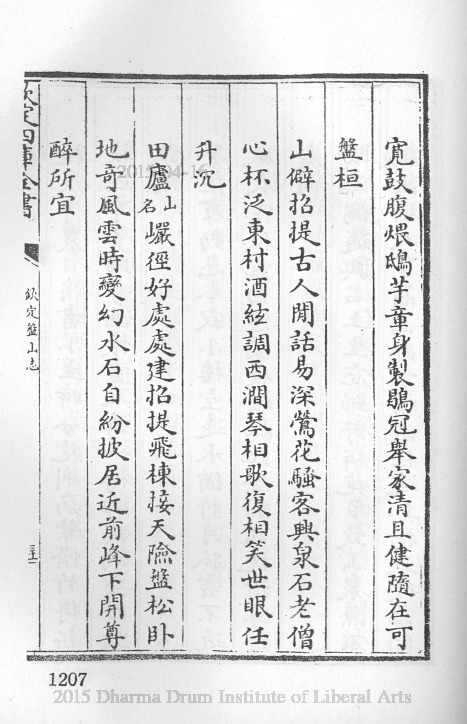 寛鼓腹煨鴟芋章身製鶡冠舉家清且健隨在可
盤桓
山僻招提古人閒話易深鶯花騷客興泉石老僧
心杯泛東村酒絃調西澗琴相歌復相笑世眼任
升沉
田廬山名巗徑好處處建招提飛棟接天險盤松卧
地奇風雲時變幻水石自紛披居近前峰下開尊
醉所宜
欽定四庫全書
欽定盤山志
1207
2015 Dharma Drum Institute of Liberal Arts